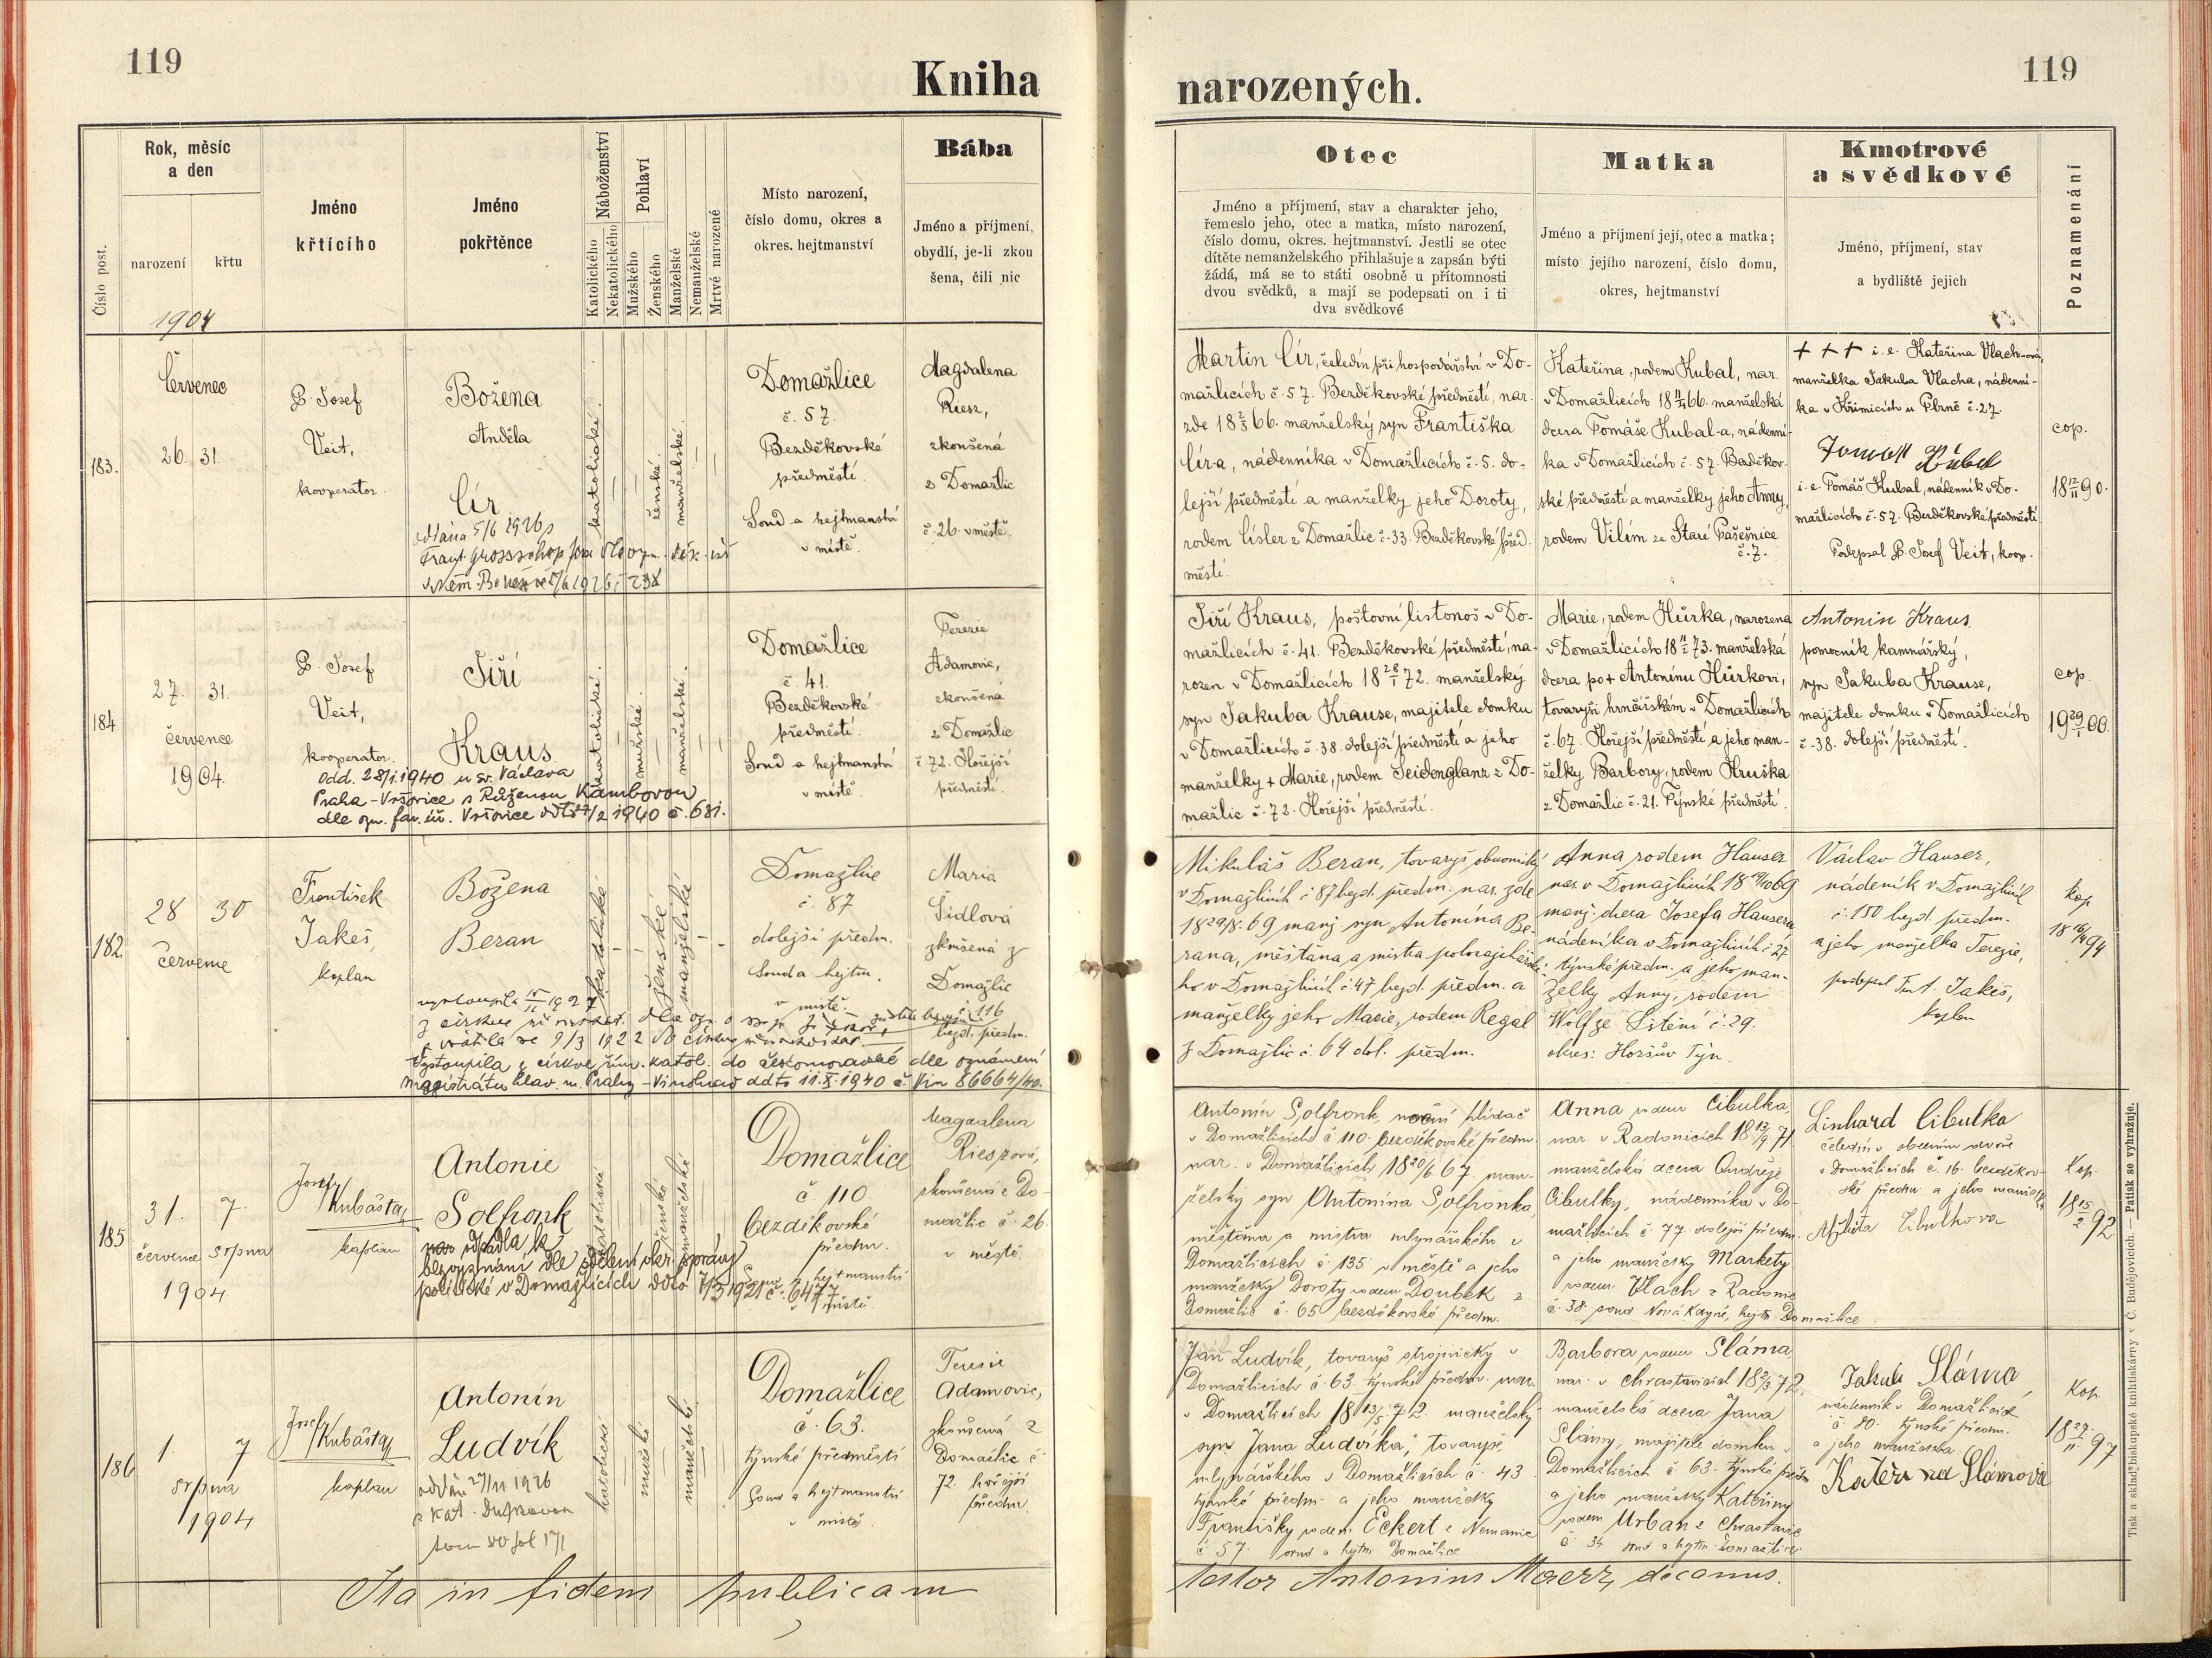 119
Kniha
narozených.
119
Číslo post.
Rok, měsíc
a den
narození
křtu
1904
Jméno
křtícího
Jméno
pokřtěnce
Náboženství
Katolického
Nekatolického
Pohlaví
Mužského
Ženského
Manželské
Nemanželské
Mrtvé narozené
Místo narození,
číslo domu, okres a
okres. hejtmanství
Bába
Jméno a příjmení,
obydlí, je-li zkou
šena, čili nic
Otec
Jméno a příjmení, stav a charakter jeho,
řemeslo jeho, otec a matka, místo narození,
číslo domu, okres. hejtmanství. Jestli se otec
dítěte nemanželského přihlašuje a zapsán býti
žádá, má se to státi osobně u přítomnosti
dvou svědků, a mají se podepsati on i ti
dva svědkové
Matka
Jméno a příjmení její, otec a matka;
místo jejího narození, číslo domu,
okres, hejtmanství
Kmotrové
a svědkové
Jméno, příjmení, stav
a bydliště jejich
Poznamenání
183.
Červenec
26. 31.
P. Josef
Veit,
kooperator.
Božena
Anděla
Cír
oddána 5/6 1926 s
katolické.
ženské.
manželské.
Domažlice
č. 57.
Bezděkovské
předměstí.
Soud a hejtmanství
v místě.
Magdalena
Riesz,
zkoušená
z Domažlic
č. 26. v městě.
Martin Cír, čeledín při hospodářství v Do-
mažlicích č. 57. Bezděkovské předměstí, nar.
zde 18 2/3 66. manželský syn Františka
Cír-a, nádenníka v Domažlicích č. 5. do-
lejší předměstí a manželky jeho Doroty,
rodem Císler z Domažlic č. 33. Bezděkovské před.
městí.
Kateřina, rodem Kubal, nar.
v Domažlicích 18 66. manželská
dcera Tomáše Kubal-a, nádenní-
ka v Domažlicích č. 57. Bezděkov-
ské předměstí a manželky jeho Anny,
rodem Vilím ze Staré Pašešnice
č. 7.
+ + + i. e. Kateřina Vlach-ová,
manželka Jakuba Vlacha, nádenní-
ka v Křimicích u Plzně č. 27.
i. e. Tomáš Kubal, nádenník v Do-
mažlicích č. 57. Bezděkovské předměstí
Podepsal P. Josef Veit, koop.
cop.
18 12/11 90.
184
27. 31.
července
1904.
P. Josef
Veit,
kooperator.
Jiří
Kraus
Odd. 28/1. 1940 u sv. Václava
Praha - Vršovice s Růženou Kambovou
dle ozn. far. úř. Vršovice 1940 č. 681.
katolické.
mužské.
manželské.
Domažlice
č. 41.
Bezděkovské
předměstí.
Soud a hejtmanství
v místě.
Terezie
Adamovic,
zkoušená
z Domažlic
č. 72. Hořejší
předměstí.
Jiří Kraus, poštovní listonoš v Do-
mažlicích č. 41. Bezděkovské předměstí, na-
rozen v Domažlicích 18 28/1 72. manželský
syn Jakuba Krause, majitele domku
v Domažlicích č. 38. dolejší předměstí a jeho
manželky + Marie, rodem Seidenglanz z Do-
mažlic č. 72. Hořejší předměstí.
Marie, rodem Hůrka, narozena
v Domažlicích 18 73. manželská
dcera po + Antonínu Hůrkovi,
tovaryši hrnčířském v Domažlicích
č. 67. Hořejší předměstí a jeho man-
želky Barbory, rodem Hruška
z Domažlic č. 21. Týnské předměstí.
Antonín Kraus
pomocník kamnářský,
syn Jakuba Krause,
majitele domku v Domažlicích
č. 38. dolejší předměstí.
cop.
19 00.
182.
28 30
července
František
Jakeš,
kaplan
Božena
Beran
Vystoupila z církve řím. katol. do českomoravské dle oznámení
magistrátu hlav. m. Prahy - Vinohrad ddto 11. X. 1940 č. Vin 86664/40.
katolické
ženské
manželské
Domažlice
č. 87
dolejší předm.
Soud a hejtm.
v místě
Maria
Šidlová
zkoušená z
Domažlic
č. 116
bezd. předm.
Mikuláš Beran, tovaryš obuvnický
v Domažlicích č 87 bezd. předm. nar. zde
18 69 manž. syn Antonína Be-
rana, měšťana a mistra
ho v Domažlicích č. 47 bezd. předm. a
manželky jeho Marie, rodem Regal
z Domažlic č. 64 dol. předm.
Anna rodem Hauser
nar. v Domažlicích 18 69
manž. dcera Josefa Hausera
nádeníka v Domažlicích č. 27
týnské předm. a jeho man-
želky Anny, rodem
Wolf ze Štění č. 29.
okres: Horšův Týn.
Václav Hauser,
nádeník v Domažlicích
č. 150 bezd. předm.
a jeho manželka Terezie,
podepsal Frant. Jakeš,
kaplan
kop
18 94
185
31. 7.
července srpna
1904
Josef
Kubásta
kaplan
Antonie
Solfronk
bezvyznání dle sdělení okr. správy
politické v Domažlicích ddto 7/3 1921 č. 6477
katolické
ženské
manželské
Domažlice
č. 110
bezděkovské
předm.
Soud hejtmanství
v místě.
Magdalena
Rieszová,
zkoušená z Do-
mažlic č. 26.
v městě.
Antonín Solfronk, noční hlídač
v Domažlicích č 110. bezděkovské předm.
nar. v Domažlicích 18 67 man-
želský syn Antonína Solfronka
měšťana a mistra mlynářského v
Domažlicích č. 135 v městě a jeho
manželky Doroty rodem Doubek z
Domažlic č. 65 bezděkovské předm.
Anna rodem Cibulka,
nar. v Radonicích 18 13/9 71
manželská dcera Ondřeje
Cibulky, nádenníka v Do-
mažlicích č 77 dolejší předm.
a jeho manželky Markety
rodem Vlach z Radonic
č. 38. soud Nová Kdyně, hejtm. Domažlice.
Linhard Cibulka
čeledín v obecním dvoře
v Domažlicích č. 16. bezděkov-
ské předm. a jeho manželka
Alžběta Cibulkova
Kop.
18 15/2 92
186
1. 7
srpna
1904
Josef
Kubásta
kaplan
Antonín
Ludvík
oddán 27/11 1926
katolické
mužské
manželské
Domažlice
č. 63.
týnské předměstí
Soud a hejtmanství
v místě
Terezie
Adamovic,
zkoušená z
Domažlic č.
72. hořejší
předm.
Jan Ludvík, tovaryš strojnický v
Domažlicích č. 63. týnské předm. nar.
v Domažlicích 18 13/5 72. manželský
syn Jana Ludvíka, tovaryše
mlynářského v Domažlicích č. 43
týnské předm. a jeho manželky
Františky rodem Eckert z Nemanic
č 57. soud a hejtm. Domažlice
Barbora rodem Sláma,
nar. v Chrastavicích 18 72,
manželská dcera Jana
Slámy, majitele domku v
Domažlicích č. 63. týnské předm
a jeho manželky Kateřiny
rodem Urban z Chrastavic
č 34 soud a hejtm. Domažlice
Jakub Sláma,
nádenník v Domažlicích
č. 80. týnské předm.
a jeho manželka.
Slámová
Kop.
18 27/11 97
Ita in fidem publicam
testor Antonius Maerz, decanus.
Tisk a sklad biskupské knihtiskárny v Č. Budějovicích. — Patisk se vyhražuje.